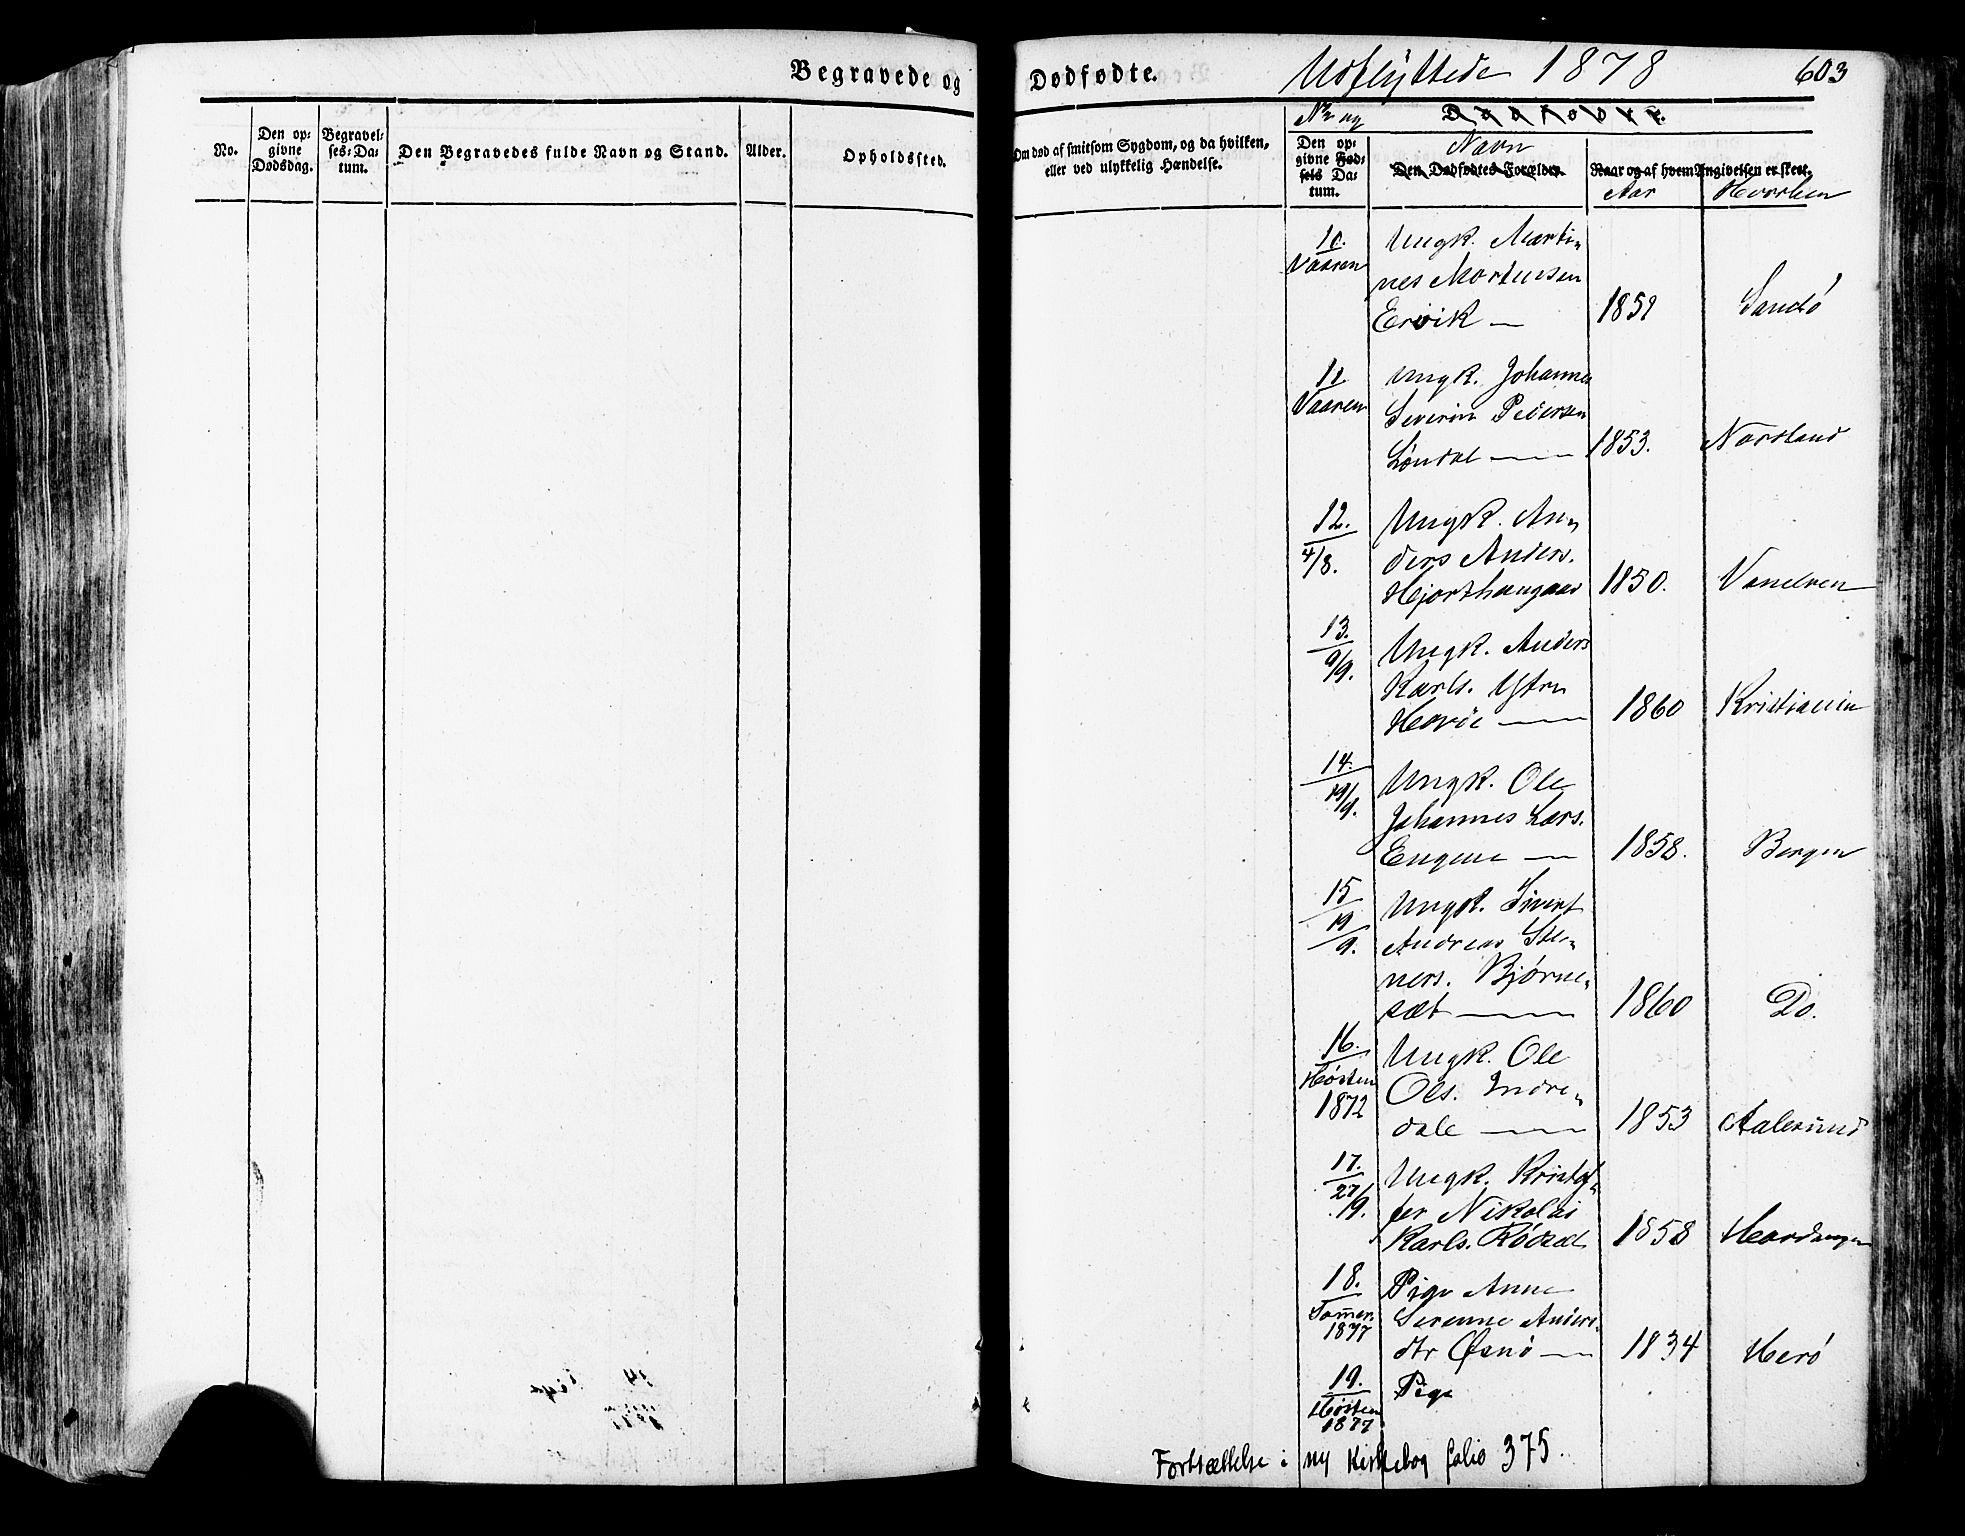 Begravede og
No.
Den op-
givne
Dødsdag.
Begravel-
ses-Da-
tum.
Den Begravedes fulde Navn og Stand.
Alder.
Opholdssted.
Dødfødte.
Udflyttede 1878
603
Om død af smitsom Sygdom, og da hvilken,
eller ved ulykkelig Hændelse.
No og
Dødfødte.
Den op-
givne Fød-
sels Da-
tum.
Navn
Den Dødfødtes Forældre.
Naar og af hvem Angivelsen er skeet.
Aar
Hvorhen
10.
Vaaren
Ungk. Marti-
nes Mortensen
Ervik —
1852
Sandø
11
Vaaren
Ungk. Johannes
Severin Pedersen
Løndal —
1853.
Nordland
12.
4/8.
Ungk. An-
ders Anders.
Hjorthaugaas
1850.
Vanelven
13.
9/9.
Ungk. Anders
Karls. Ytre
Havie —
1860
Kristiania
14.
19/9.
Ungk. Ole
Johannes Lars.
Engene —
1858.
Bergen
15
19/9.
Ungk. Sivert
Andreas Ste-
ners. Bjørne-
sæt —
1860
Do.
16.
Høsten
1872
Ungk. Ole
Ols. Indre-
dale —
1853
Aalesund
17.
27/9.
Ungk. Kristof-
fer Nikolai
Karls. Rødsæt
1858
Hardanger
18.
Som̄er.
1877
Pige Anne
Serenne Anders-
dtr Øsnø —
1834
Herø
19.
Høsten
1877
Pige
Fortsættelse i ny Kirkebog folio 375.